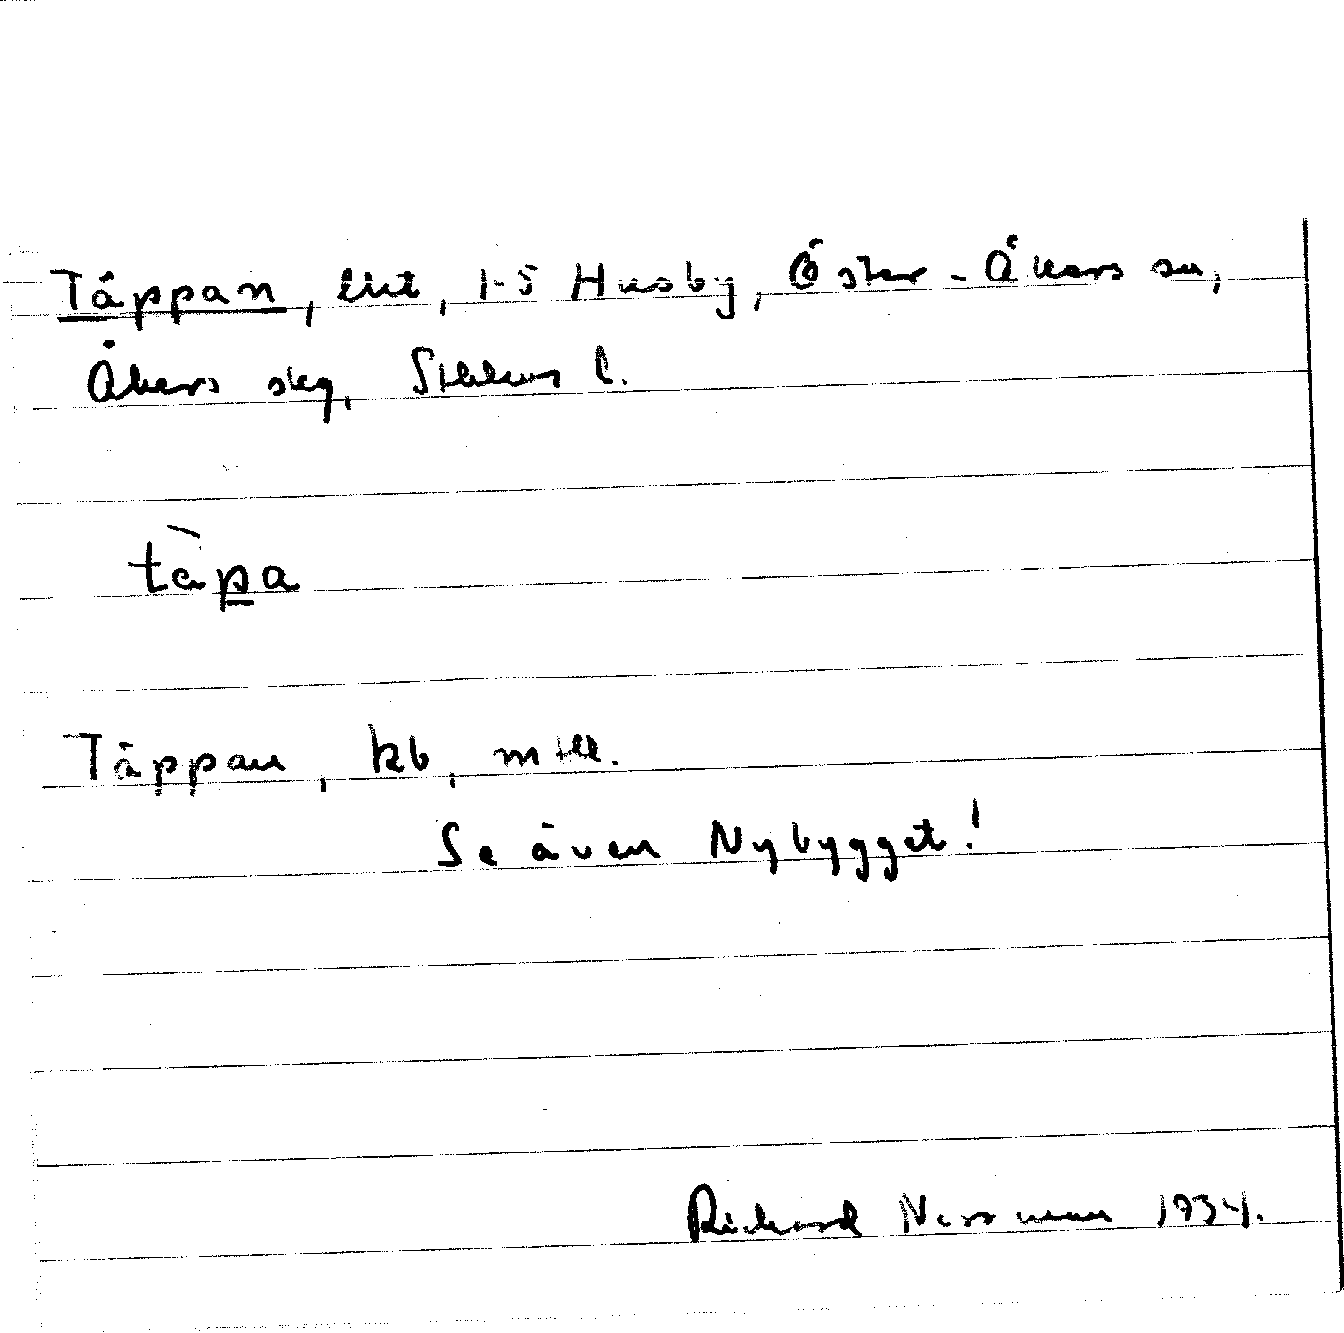 Täppan, lht, 1-5 Husby, Öster-Åkers sn,
Åkers skg, Sthlms l.
tàpa
Täppan, kb, mtll.
Se även Nybygget!
Richard Norrman 1934.